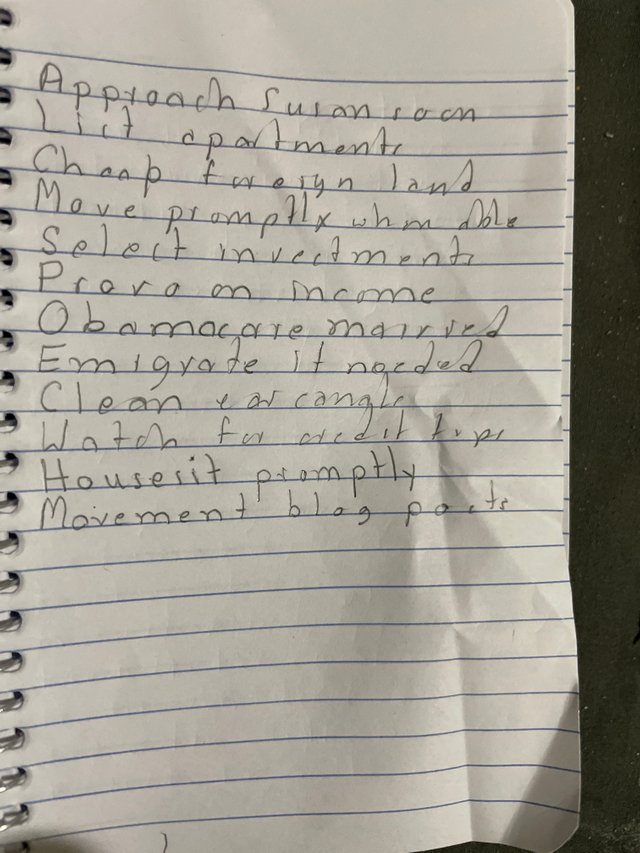 Approach Susan soon
List apartments
Cheap foreign land
Move promptly when able
Select investments
Prove on income
Obamacare married
Emigrate if needed
Clean ear canals
Watch for credit
Housesit promptly
Movement blog posts